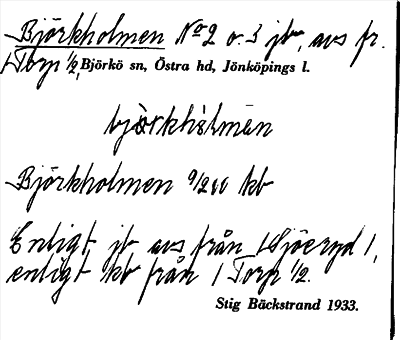 Björkholmen No 2 o. 3 jb, avs fr.
1 Torp 1/2, Björkö sn, Östra hd, Jönköpings l.
björkhòlmen
Björkholmen kb
Enligt jb avs från 1 Sjöeryd 1,
enligt kb från 1 Torp 1/2.
Stig Bäckstrand 1933.